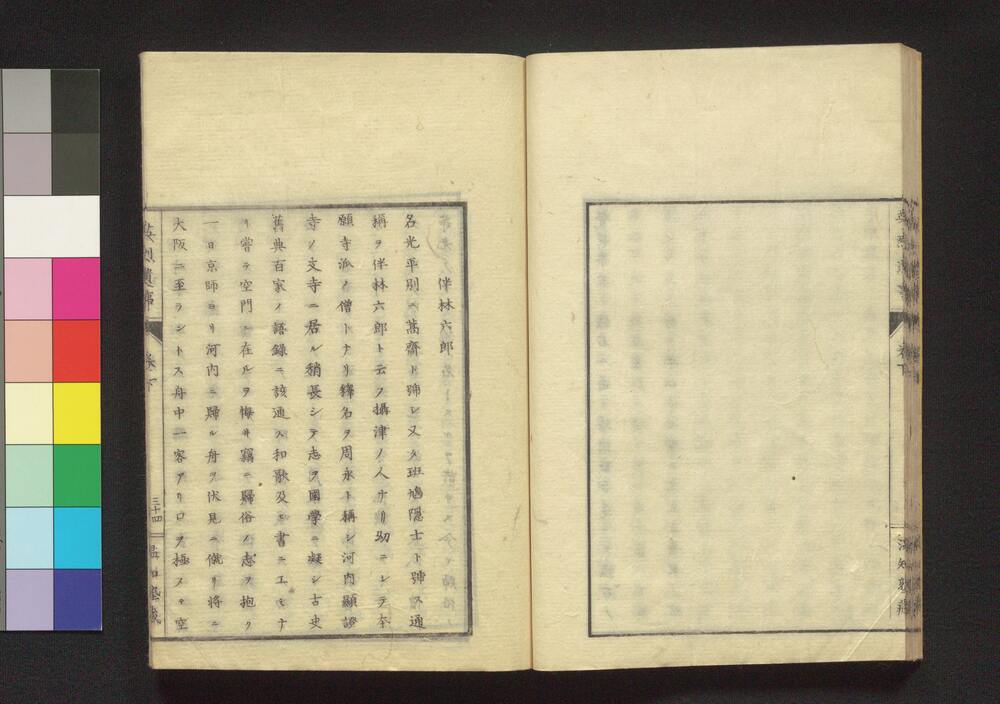 伴林六郎
名光平別ニ蒿齋ト號シ又タ斑鳩隠士ト號ス通
稱ヲ伴林六郎ト云フ攝津ノ人ナリ幼ニシテ本
願寺派ノ僧トナリ釋名ヲ周永ト稱シ河内顯證
寺ノ文寺ニ居ル稍長シテ志ヲ國學ニ凝シ古史
舊典百家ノ語録ニ該通ス和歌及ヒ書ニ工ミナ
リ嘗テ空門ニ在ルヲ悔ヰ竊ニ歸俗ノ志ヲ抱ク
一日京師ヨリ河内ニ歸ル舟ヲ伏見ニ僦リ將ニ
大阪ニ至ラントス舟中一客アリ口ヲ極メテ空
遺
卷下
三十四